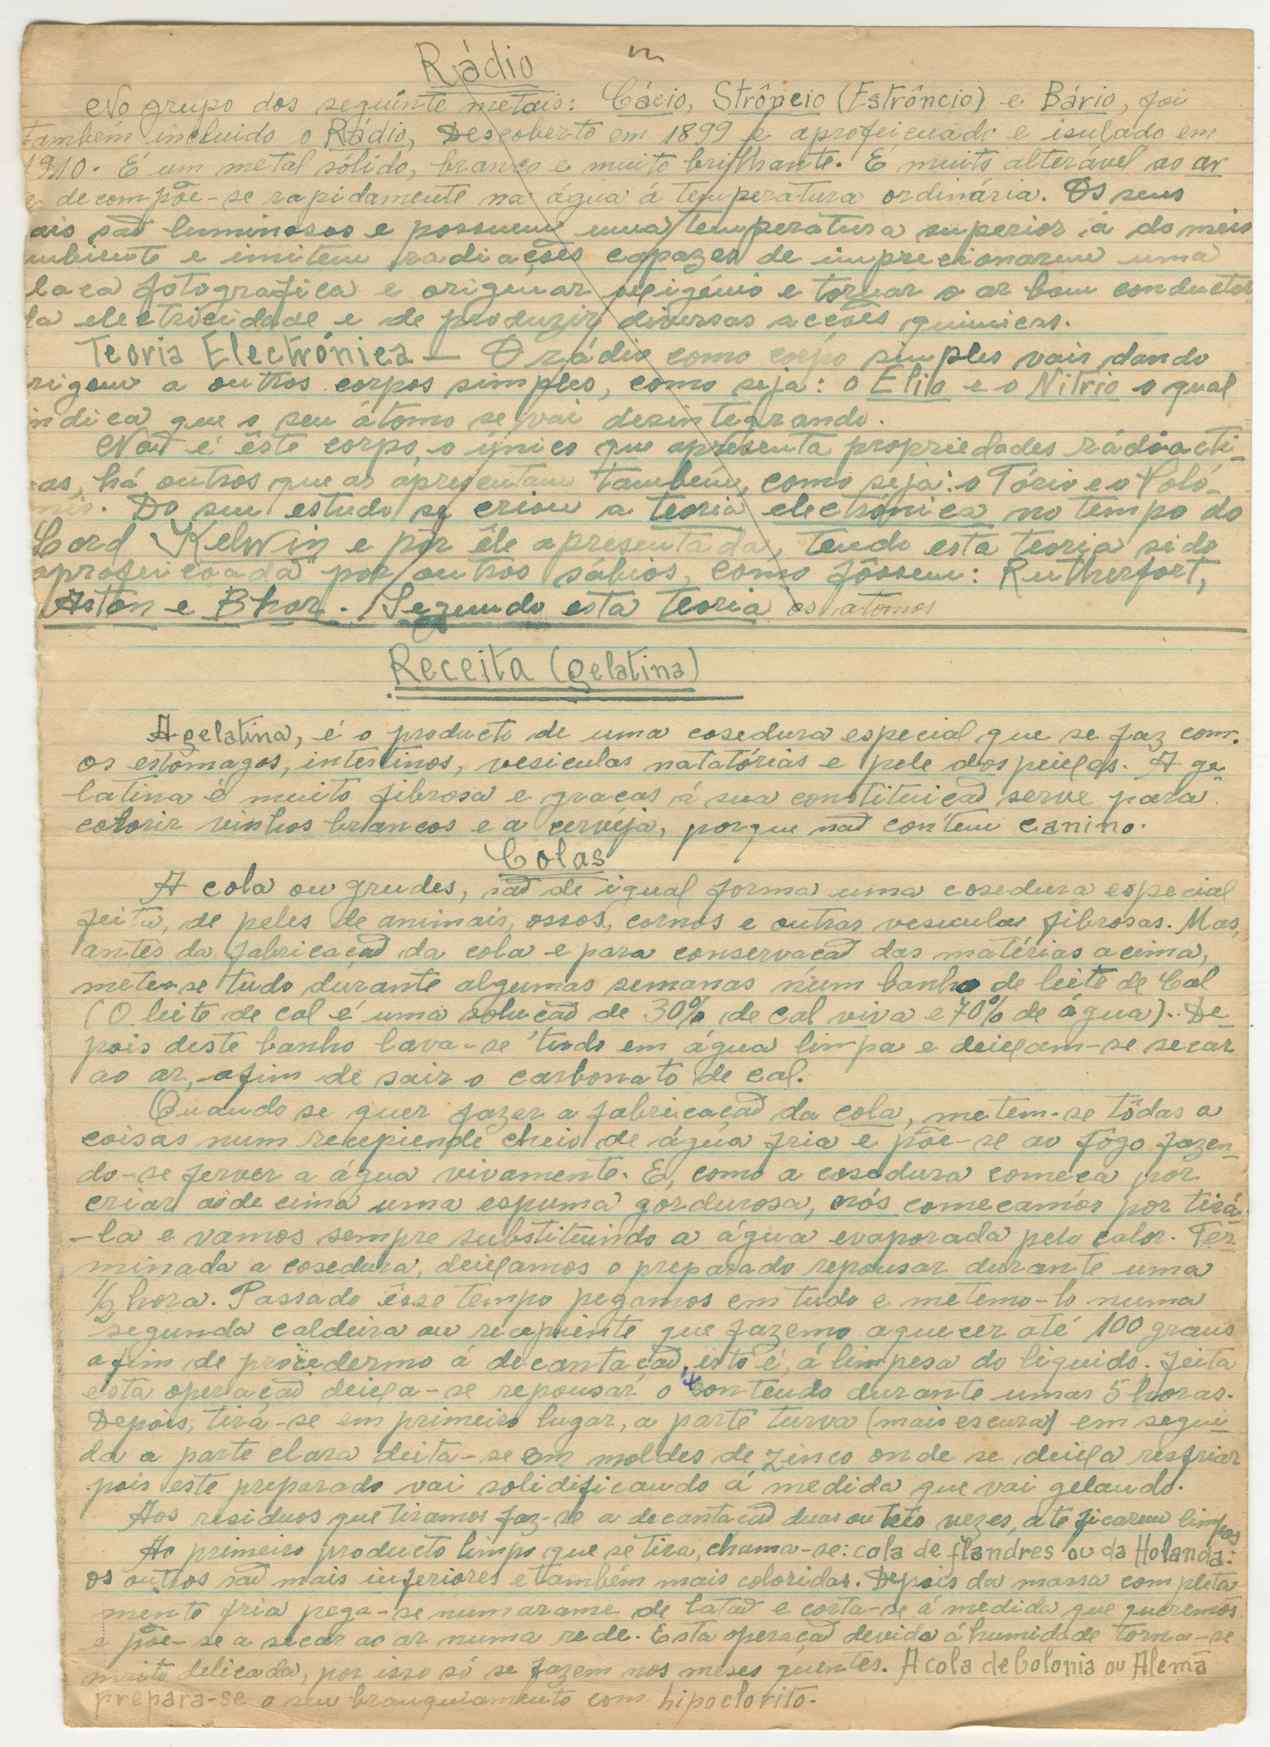 Rádio
No grupo dos seguinte metais: Cácio, Strôncio (Estrôncio) e Bário, foi
tambem incluido o Rádio, Descoberto em 1899 e aprofeicuado e isulado em
1910. É um metal sólido, branco e muito brilhante. É muito alterável ao ar
e decompõe-se rapidamente na água á temperatura ordinária. Os seus
ais são luminosos e possuem uma temperatura superior á do meio
mbiente e imitem radiações capazes de imprecionarem uma
laca fotografica e originar oxigénio e tornar o ar bom conductor
da electricidade e de produzir diversas acções quimicas.
Teoria Electrónica — O rádio como corpo simples vais dando
rigem a outros corpos simples, como seja: o Élio e o Nitrio o qual
indica que o seu átomo se vai desintegrando.
Não é êste corpo, o único que apresenta propriedades rádioacti-
as, há outros que as aprentam tambem, como seja: o Tório e o Poló-
nio. Do seu estudo se criou a teoria electrónica no tempo do
Lord Kelwin e por êle apresentada, tendo esta teoria sido
aprofeicoada por outros sábios, como fôssem: Rutherfort,
Aston e Bhor. Segundo esta teoria os atomos
Receita (gelatina)
A gelatina, é o producto de uma cosedura especial que se faz com.
os estômagos, intestinos, vesiculas natatórias e pele dos peixes. A ge-
latina é muito fibrosa e gracas á sua constituicão serve para
colorir vinhos brancos e a cerveja, porque não contem canino.
Colas
A cola ou grudes, são de igual forma uma cosedura especial
feita, de peles de animais, ossos, cornos e outras vesicula fibrosas. Mas,
antes da fabricação da cola e para conservacão das matérias acima,
mete-se tudo durante algumas semanas num banho de leite de Cal
(O leite de cal é uma solucão de 30% de cal viva e 70% de água). De-
pois deste banho lava-se tudo em água limpa e deixam-se secar
ao ar, afim de sair o carbonato de cal.
Quando se quer fazer a fabricacão da cola, metem-se tôdas a
coisas num recepiende cheio de água fria e põe-se ao fôgo fazen-
do-se ferver a água vivamente. E, como a cosedura começa por
criar aode cima uma espuma gordurosa, nós comecamos por tirá-
-la e vamos sempre substituindo a água evaporada pelo calor. Ter-
minada a cosedura, deixamos o preparado repousar durante uma
1/2 hora. Passado êsse tempo pegamos em tudo e metemo-lo numa
segunda caldeira ou recepiente que fazemo aquecer até 100 graus
afim de procedermo á decantacão, isto é, á limpesa do liquido. Feita
esta operacão deixa-se repousar o contendo durante umas 5 horas.
Depois, tira-se em primeiro lugar, a parte turva (mais escura) em segui-
da a parte clara deita-se em moldes de zinco onde se deixa resfriar
pois este preparado vai solidificando á medida que vai gelando.
Aos residuos que tiramos faz-se a decantacão duas ou três vezes, até ficarem limpos
Ao primeiro producto limpo que se tira, chama-se: cola de flandres ou da Holanda:
os outros são mais inferiores e também mais coloridas. Depois da massa completa
mente fria pega-se num arame de latão e corta-se á medida que queremos
e põe-se a secar ao ar numa rede. Esta operacão devida á humidade torna-se
muito delicada, por isso só se fazem nos meses quentes. A cola de Colonia ou Alemã
prepara-se o seu branquiamento com hipoclorito.